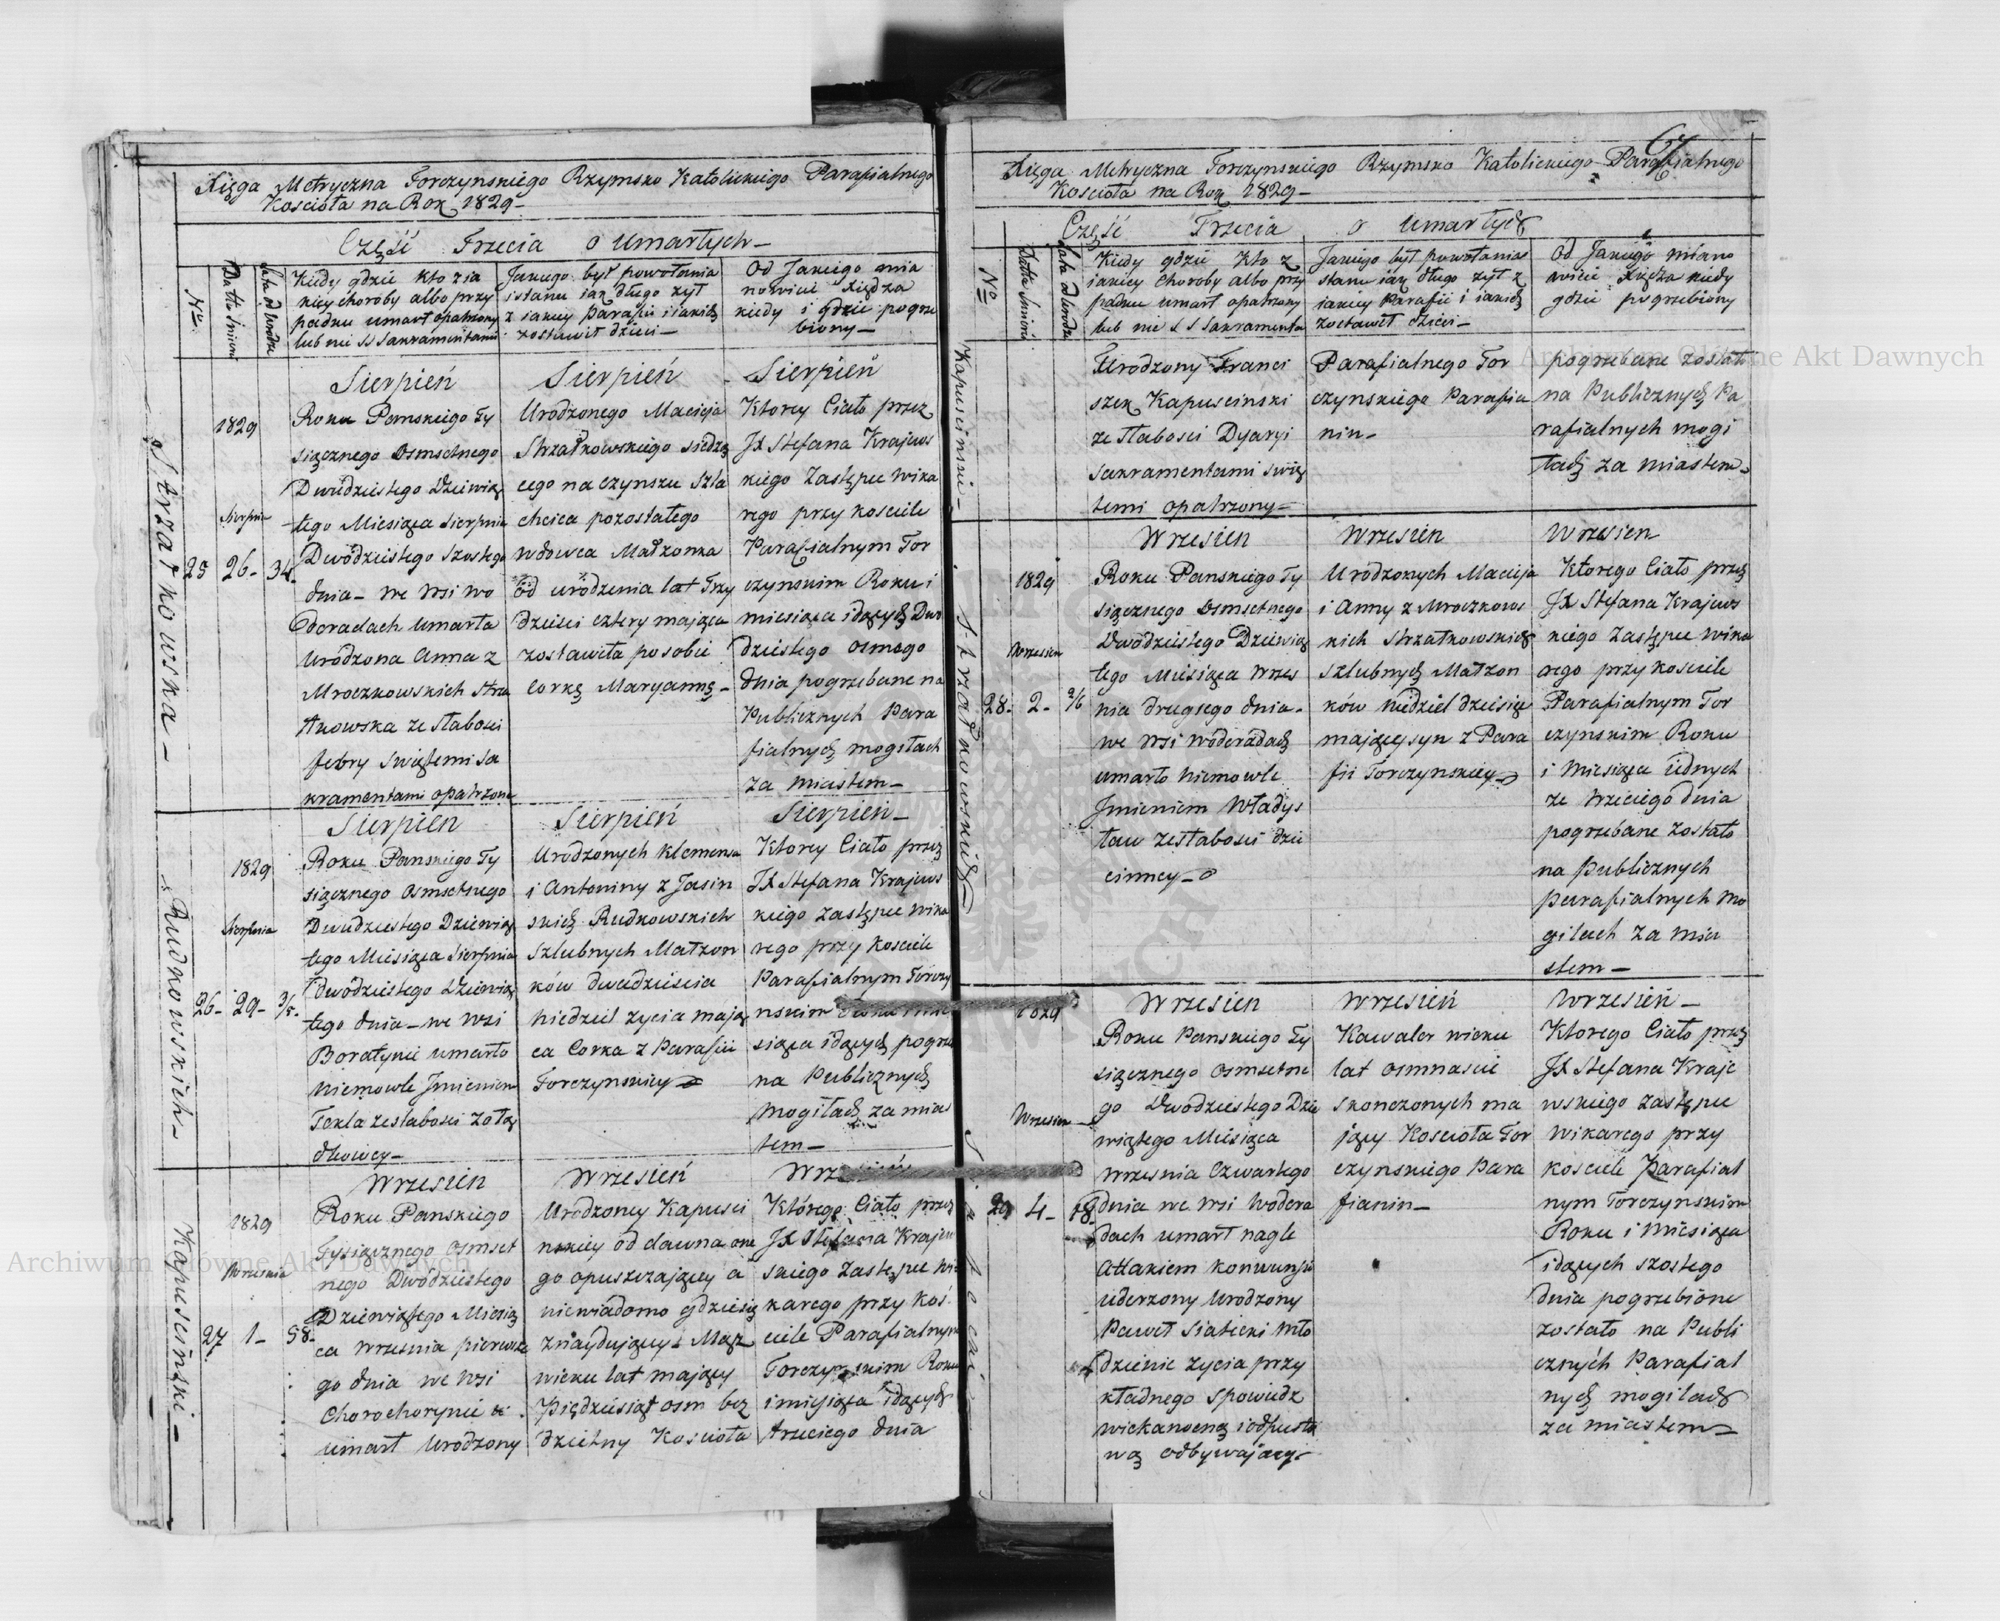 Xięga Metryczna Torczynskiego Rzymsko Katolickiego Parafialnego
Koscioła na Rok 1829-
Część Trzecia o Umarłych-
No.
Datta Smierci
Lata od Urodz
Kiedy gdzie kto z ja
kiey choroby albo przy
padku umarł opatrzony
lub nie SS Sakramentami
Jakiego był powołania
i stanu jak długo żył
z jakiey Parafii i jakich
zostawił dzieci-
Od Jakiego mia
nowicie Xiędza
kiedy i gdzie pogrze
biony-
Strzałkowska-
1829
Sierpnia
25 26- 34.
Sierpień
Roku Panskiego Ty
siącznego Osmsetnego
Dwudziestego Dziewią
tego Miesiąca Sierpnia
Dwódziestego Szostego
dnia- we Wsi Wo
deradach umarła
Urodzona Anna z
Mroczkowskich Strza
łkowska ze słabosci
febry Swiętemi Sa
kramentami opatrzona
Sierpień
Urodzonego Macieja
Strzałkowskiego siedzą
cego na czynszu szla
chcica pozostałego
wdowca Małżonka
od urodzenia lat Trzy
dziesci cztery mająca
zostawiła po sobie
Corkę Maryannę-
Sierpień
Ktorey Ciało przez
JX Stefana Krajews
kiego Zastępce Wika
rego przy kosciele
Parafialnym Tor
czynskim Roku i
miesiąca idących Dwu
dziestego osmego
dnia pogrzebane na
Publicznych Para
fialnych mogiłach
za miastem-
Rudkowskich-
1829
Sierpnia
26- 29- 3/5.
Sierpien
Roku Panskiego Ty
siącznego Osmsetnego
Dwudziestego Dziewią
tego Miesiąca Sierpnia
dwódziestego Dziewią
tego dnia- we Wsi
Boratynie umarło
Niemowle Jmieniem
Tekla ze słabosci żołą
dkowey-
Sierpień
Urodzonych Klemensa
i Antoniny z Jasin
skich Rudkowskich
Szlubnych Małżon
ków dwadziescia
niedziel życia mają
ca Corka z Parafii
Torczynskiey
Sierpien-
Ktorey Ciało przez
JX Stefana Krajews
kiego Zastępce Wika
rego przy kosciele
Parafialnym Torczy
nskim
siąca idących pogrze
na Publicznych
Mogiłach za mias
tem-
Kapuscinski-
1829
Wrzesnia
27 1- 58.
Wrzesień
Roku Panskiego
Tysiącznego Osmset
nego Dwódziestego
Dziewiątego Miesią
ca Wrzesnia pierwsze
go dnia we Wsi
Chorochorynie
umarł Urodzony
Wrzesień
Urodzoney Kapusci
nskiey od dawna one
go opuszczającey a
niewiadomo gdziesię
znaydującey Mąż
wieku lat mający
Pięćdziesiąt osm bez
dzietny Kosciola
Wrzesień
Którego Ciało przez
JX Stefana Krajew
skiego Zastępce Wi
karego przy Kos
ciele Parafialnym
Torczynskim Roku
i miesiąca idących
trzeciego dnia
Xięga Metryczna Torczynskiego Rzymsko Katolickiego Parafialnego
Kosciola na Rok 1829-
Część Trzecia o Umarłych
No
Datta Smierci
Lata od Urodz
Kiedy gdzie Kto z
jakiey choroby albo przy
padku umarł opatrzony
lub nie SS Sakramenta
Jakiego był powołania
stanu jak długo żył z
jakiey Parafii i jakich
zostawił dzieci-
Od Jakiego miano
wicie Xiędza kiedy
gdzie pogrzebiony
Kapuscinski-
Urodzony Franci
szek Kapuscinski
ze słabosci Dyaryi
Sakramentami Swię
temi opatrzony-
Parafialnego Tor
czynskiego Parafia
nin-
pogrzebane zostało
na Publicznych Pa
rafialnych mogi
łach za miastem-
Strzałkowskich-
1829
Wrzesien
28. 2- 2/6
Wrzesien
Roku Panskiego Ty
siącznego Osmsetnego
Dwódziestego Dziewią
tego Miesiąca Wrzes
nia drugiego dnia-
we Wsi Woderadach
umarło Niemowle
Jmieniem Władys
ław ze słabosci dzie
cinney-
Wrzesień
Urodzonych Macieja
i Anny z Mroczkows
kich Strzałkowskich
Szlubnych Małżon
ków niedziel dziesięć
mający syn z Para
fii Torczynskiey
Wrzesien
Ktorego Ciało przez
JX Stefana Krajews
kiego Zastępce Wika
rego przy kosciele
Parafialnym Tor
czynskim Roku
i Miesiąca idnych
ze trzeciego dnia
pogrzebane zostało
na Publicznych
Parafialnych Mo
gilach za mia
stem-
1829
Wrzesien
29 4- 18.
Wrzesien
Roku Panskiego Ty
siącznego Osmsetne
go Dwódziestego Dzie
wiątego Miesiąca
Wrzesnia Czwartego
dnia we Wsi Wodera
dach umarł nagle
Attakiem konwulsji
uderzony Urodzony
Paweł Siatecki mło
dzienic życia przy
kładnego Spowiedz
wiekanocną i odpusto
wą odbywający-
Wrzesień
Kawaler wieku
lat osmnascie
skonczonych ma
jący Kosciola Tor
czynskiego Para
fianin-
Wrzesień-
Ktorego Ciało przez
JX Stefana Kraje
wskiego Zastępce
Wikarego przy
kosciele Parafial
nym Torczynskim
Roku i Miesiąca
idących szostego
dnia pogrzebione
zostało na Publi
cznych Parafial
nych mogilach
za miastem-
Archiwum Główne Akt Dawnych
Archiwum Główne Akt Dawnych